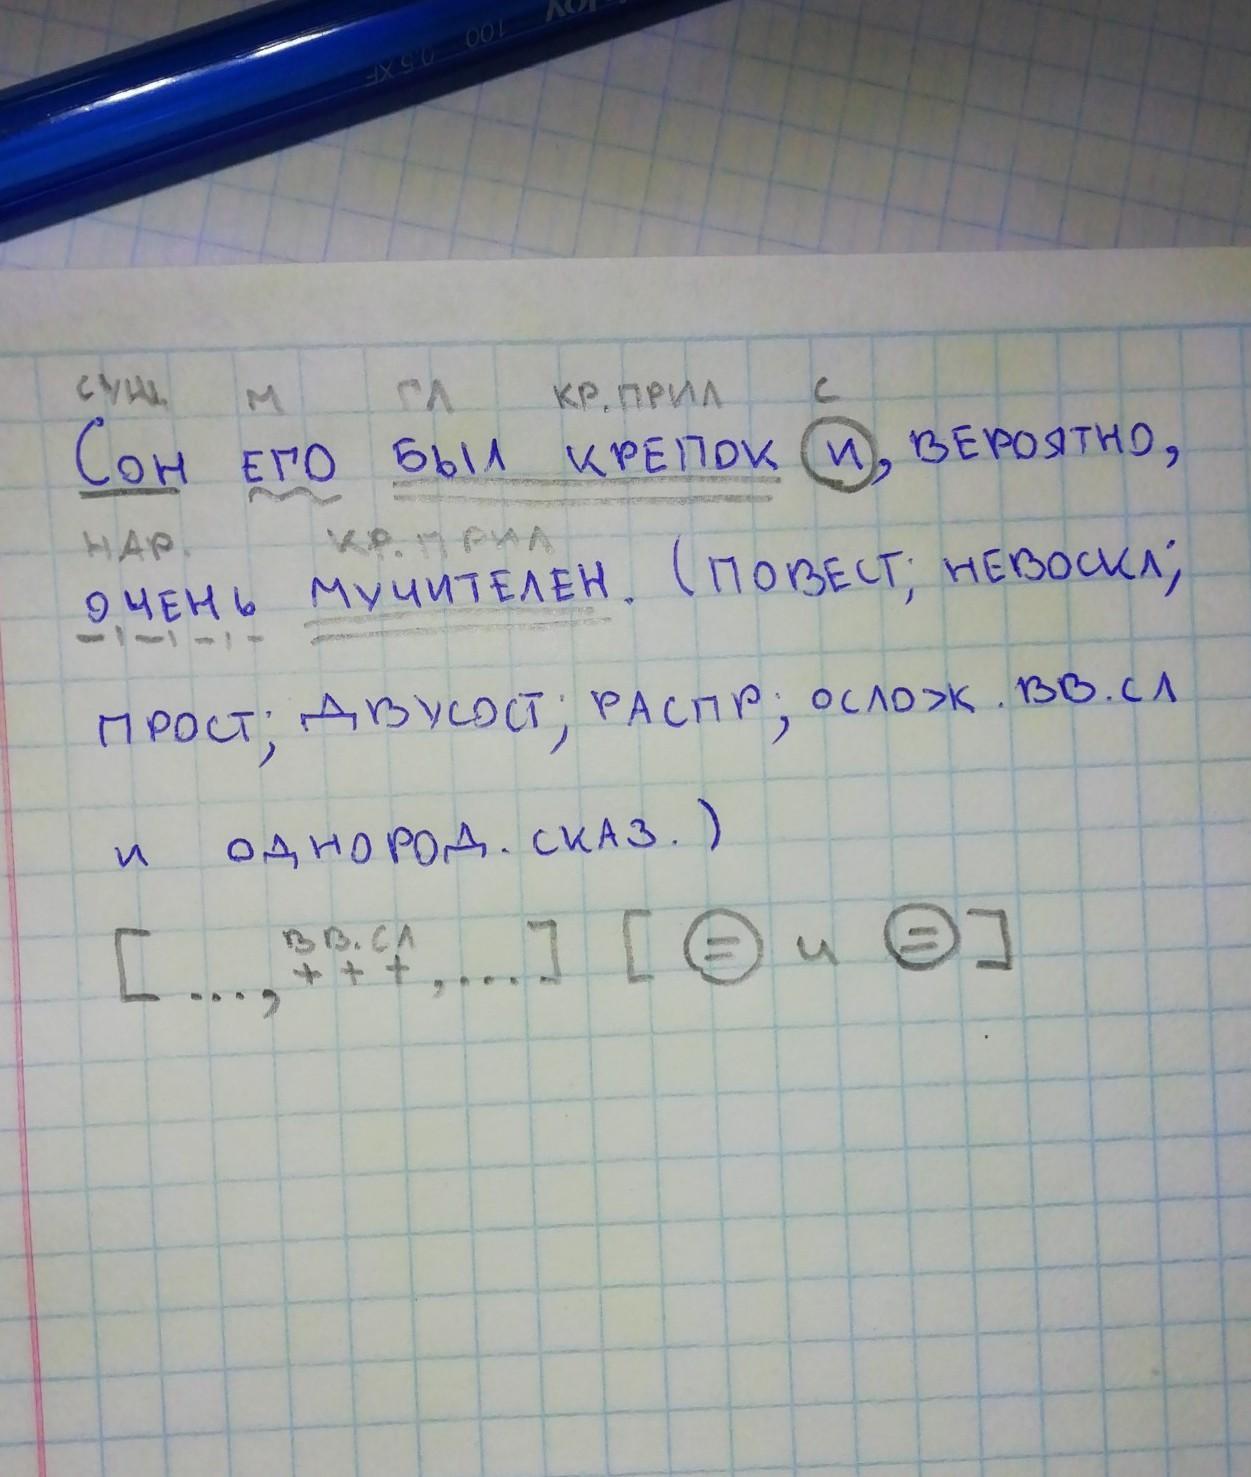 100 0.5 XF
сущ. м гл кр.прил с
Сон его был крепок и, вероятно,
нар. кр.прил
очень мучителен. (повест; невоскл;
прост; двусост; распр; ослож. вв.сл
и однород. сказ.)
вв.сл
[..., + + +, ...] [ = и = ]